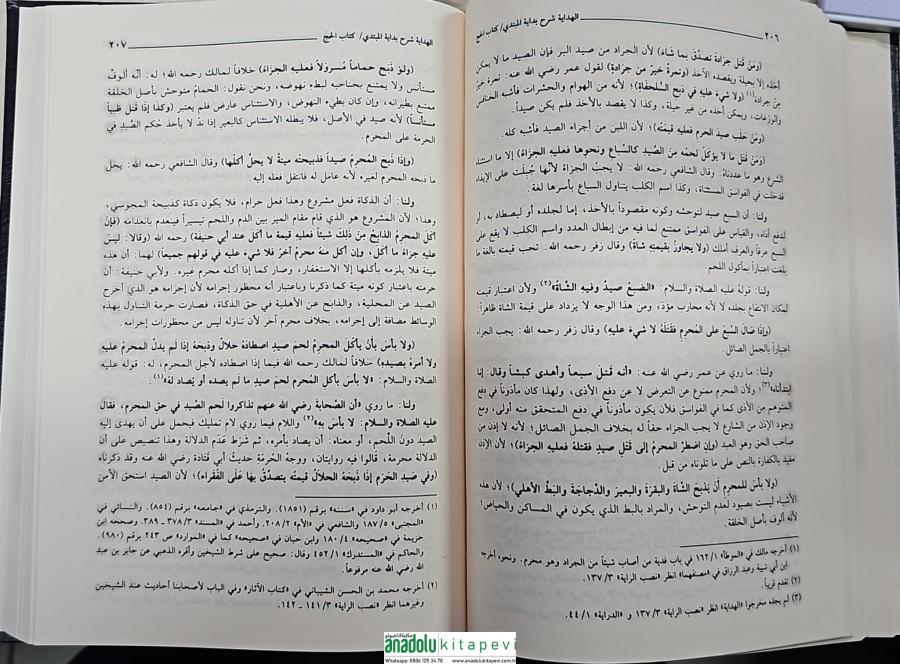 ٢٠٦
الهداية شرح بداية المبتدي/ كتاب الحج
(وَمَنْ قَتَلَ جَرَادَةً تَصدَّقَ بِمَا شَاءَ) لأن الجراد من صيد البر فإن الصيد ما لا يمكن
أخذه إلا بحيلة ويقصده الآخذ (وتمرةٌ خيرٌ من جرادةٍ) لقول عمر رضي الله عنه: تمرة خيرٌ
مِنْ جرادة(١) (ولا شيء عليه في ذبح السُّلحفاة)؛ لأنه من الهوام والحشرات فأشبه الخنافس
والوزغات، ويمكن أخذه من غير حيلة، وكذا لا يقصد بالأخذ فلم يكن صيداً.
(وَمَن حَلَب صيدَ الحَرم فعليه قيمتُه)؛ لأن اللبن من أجزاء الصيد فأشبه كله.
(وَمَنْ قَتل ما لا يؤكلُ لحمُه منَ الصَّيدِ كالسِّباعِ ونحوها فعليه الجزاءُ) إلا ما استثناه
الشرع وهو ما عددناه. وقال الشافعي رحمه الله: لا يجبُ الجزاءُ لأنَّها جُبِلَت على الإيذاء
فدخلت في الفواسق المستثناة، وكذا اسم الكلب يتناول السباع بأسرها لغة.
ولنا: أن السبع صيد لتوحشه وكونه مقصوداً بالأخذ، إما لجلده أو ليصطاد به، أو
لدفع أذاه، والقياس على الفواسق ممتنع لما فيه من إبطال العدد واسم الكلب لا يقع على
السبع عرفاً والعرف أملك (ولا يجاوزُ بقيمتِهِ شاةً) وقال زفر رحمه الله: تجب قيمته بالغة ما
بلغت اعتباراً بمأكول اللحم.
ولنا: قولهُ عليه الصلاة والسلام: «الضبعُ صيدٌ وفيهِ الشَّاةُ»(٢) ولأن اعتبار قيمته
لمكان الانتفاع بجلده لا لأنه محارب مؤذ، ومن هذا الوجه لا يزداد على قيمة الشاة ظاهراً.
(وإذا صَالَ السَّبعُ على المُحرِمِ فقتَلَهُ لا شيءَ عليه) وقال زفر رحمه الله: يجب الجزاء
اعتباراً بالجمل الصائل.
ولنا: ما روي عن عمر رضي الله عنه: «أنه قَتلَ سبعاً وأهدى كبشاً وقال: إنا
ابتدأناه»(٣)؛ ولأن المحرم ممنوع عن التعرض لا عن دفع الأذى، ولهذا كان مأذوناً في دفع
المتوهم من الأذى كما في الفواسق فلأن يكون مأذوناً في دفع المتحقق منه أولى، ومع
وجود الإذن من الشارع لا يجب الجزاء حقاً له بخلاف الجمل الصائل؛ لأنه لا إذن من
صاحب الحق وهو العبد (وإن اضطرَّ المحرمُ إلى قَتلِ صيدٍ فقتلهُ فعليهِ الجزاءُ)؛ لأن الإذن
مقيد بالكفارة بالنص على ما تلوناه من قبل.
(ولا بأس للمحرمِ أن يذبحَ الشَّاةَ والبقرَةَ والبعيرَ والدَّجاجَةَ والبَطَّ الأهلي)؛ لأن هذه
الأشياء ليست بصيود لعدم التوحش، والمراد بالبط الذي يكون في المساكن والحياض؛
لأنه ألوف بأصل الخلقة.
(١) أخرجه مالك في «الموطأ» ١/١٦٢ في باب فدية من أصاب شيئاً من الجراد وهو محرم. ونحوه أخرجه
ابن أبي شيبة وعبد الرزاق في «مصنفهما» انظر «نصب الراية» ١٣٧/٣.
(٢) تقدم قريباً.
(٣) لم يجده مخرجوا «الهداية» انظر «نصب الراية» ١٣٧/٣ و «الدراية» ٤٤/١.
الهداية شرح بداية المبتدي/ كتاب الحج
٢٠٧
(وَلوْ ذَبَحَ حماماً مُسَرولاً فعليه الجزاءُ) خلافاً لمالك رحمه الله؛ له: أنه ألوفٌ
مستأنس ولا يمتنع بجناحيه لبطء نهوضه، ونحن نقول: الحمامُ متوحش بأصل الخلقة
ممتنع بطيرانه، وإن كان بطيء النهوض، والاستئناس عارض فلم يعتبر (وكذا إذا قَتل ظَبياً
مستأنساً) لأنه صيد في الأصل، فلا يبطله الاستئناس كالبعير إذا ندَّ لا يأخذ حُكم الصَّيدِ في
الحرمة على المحرم.
(وإذا ذَبحَ المُحرِمُ صَيداً فذبيحتُه ميتةٌ لا يحلُّ أكلُها) وقال الشافعي رحمه الله: يحل
ما ذبحه المحرم لغيره لأنه عامل له فانتقل فعله إليه.
ولنا: أن الذكاة فعل مشروع وهذا فعل حرام، فلا يكون ذكاة كذبيحة المجوسي،
وهذا؛ لأن المشروع هو الذي قام مقام الميز بين الدم واللحم تيسيراً فينعدم بانعدامه (فإنْ
أَكَلَ المحرمُ الذابحُ مِنْ ذَلِكَ شيئاً فعليهِ قيمة ما أَكَلَ عند أبي حنيفة) رحمه الله (وقالا: ليسَ
عليهِ جزاءُ ما أَكَلَ، وإن أكلَ منهُ محرمٌ آخرُ فلا شيءَ عليه في قولهم جميعاً) لهما: أن هذه
ميتة فلا يلزمه بأكلها إلا الاستغفار، وصار كما إذا أكله محرم غيره. ولأبي حنيفة: أن
حرمته باعتبار كونه ميتة كما ذكرنا وباعتبار أنه محظور إحرامه لأن إحرامه هو الذي أخرج
الصيد عن المحلية، والذابح عن الأهلية في حق الذكاة، فصارت حرمة التناول بهذه
الوسائط مضافة إلى إحرامه، بخلاف محرم آخر لأن تناوله ليس من محظورات إحرامه.
(ولا بأسَ بأنْ يأكُلَ المحرمُ لحمَ صيدٍ اصطادَهُ حلالٌ وذبحَهُ إذا لم يدلَّ المحرمُ عليهِ
ولا أمرهُ بصيدِهِ) خلافاً لمالك رحمه الله فيما إذا اصطاده لأجل المحرم، له: قوله عليه
الصلاة والسلام: «لا بأسَ بأكل المُحرمِ لحمَ صيدٍ ما لم يصده أو يُصاد له»(١).
ولنا: ما روي «أن الصَّحابةَ رضي الله عنهم تذاكروا لَحم الصيدِ في حقِ المحرم، فقالَ
عليه الصلاة والسلام: لا بأس به»(٢) واللام فيما روي لام تمليك فيحمل على أن يهدى إليه
الصيد دونَ اللَّحم، أو معناه: أن يصاد بأمره، ثم شَرَط عَدَم الدلالة وهذا تنصيص على أن
الدلالة محرمة، قالوا فيه روايتان، ووجهُ الحُرمَةِ حديثُ أبي قتادة رضي الله عنه وقد ذكرناه
(وفي صَيدِ الحَرَمِ إذَا ذَبَحَهُ الحلالُ قيمتُه يتصدَّقُ بِهَا عَلَى الفُقَراء)؛ لأن الصيد استحق الأمن
(١) أخرجه أبو داود في «سننه» برقم (١٨٥١). والترمذي في «جامعه» برقم (٨٥٤). والنسائي في
«المجتبى» ١٨٧/٥ والشافعي في «الأم» ٢٠٨/٢. وأحمد في «المسند» ٣٧٨/٣ ـ ٣٨٩. وصححه ابن
خزيمة في «صحيحه» ١٨٠/٤ وابن حبان في «صحيحه» كما في «الموارد» ص ٢٤٣ برقم (٩٨٠).
والحاكم في «المستدرك» ٤٥٢/١ وقال: صحيح على شرط الشيخين وأقره الذهبي عن جابر بن عبد
الله رضي الله عنه مرفوعاً.
(٢) أخرجه محمد بن الحسن الشيباني في «كتاب الآثار» وفي الباب لأصحابنا أحاديث عند الشيخين
وغيرهما انظر «نصب الراية» ١٤١/٣ ـ ١٤٢.
anadolukitapevi
Whatsapp: 0506 125 34 70 www.anadolukitapevi.com.tr